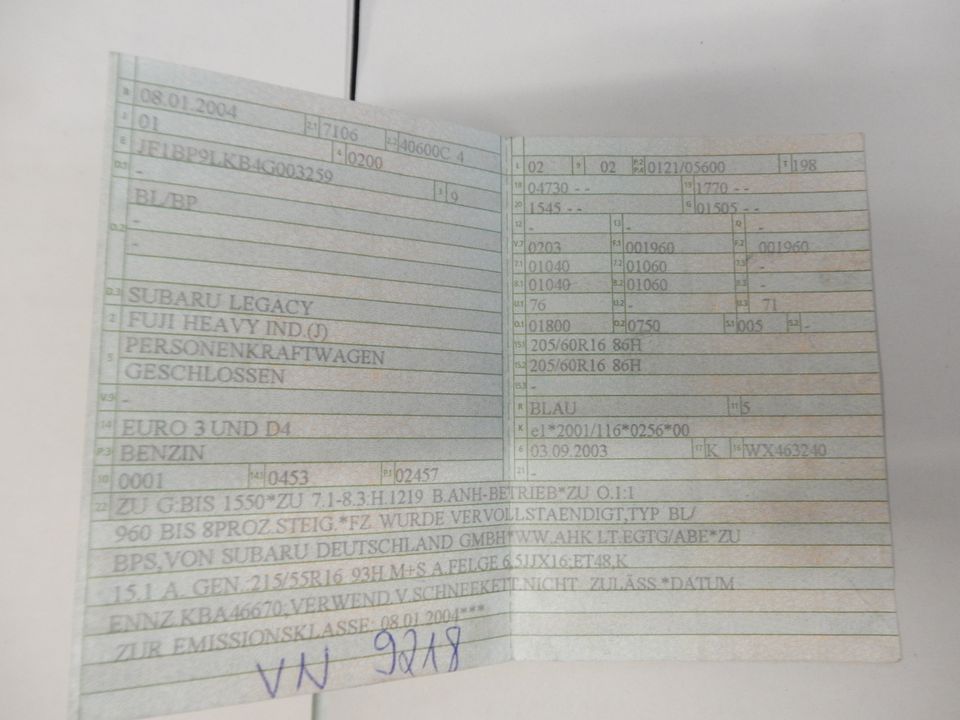 B 08.01.2004 2.1 7106 2.2 40600C 4
J 01 4 0200
E JF1BP9LKB4G003259 3 9
D.1 -
BL/BP
D.2 -
-
D.3 SUBARU LEGACY
2 FUJI HEAVY IND.(J)
5 PERSONENKRAFTWAGEN
GESCHLOSSEN
V.9 -
14 EURO 3 UND D4
P.3 BENZIN
10 0001 14.1 0453 P.1 02457
L 02 9 02 P.2 P.4 0121/05600 T 198
18 04730 - - 19 1770 - -
20 1545 - - G 01505 - -
12 - 13 - Q -
V.7 0203 F.1 001960 F.2 001960
7.1 01040 7.2 01060 7.3 -
8.1 01040 8.2 01060 8.3 -
U.1 76 U.2 - U.3 71
O.1 01800 O.2 0750 S.1 005 S.2 -
15.1 205/60R16 86H
15.2 205/60R16 86H
15.3 -
R BLAU 11 5
K e1*2001/116*0256*00
6 03.09.2003 17 K 16 WX463240
21 -
22 ZU G:BIS 1550*ZU 7.1-8.3:H.1219 B.ANH-BETRIEB*ZU O.1:1
960 BIS 8PROZ.STEIG.*FZ WURDE VERVOLLSTAENDIGT,TYP BL/
BPS,VON SUBARU DEUTSCHLAND GMBH*WW.AHK LT.EGTG/ABE*ZU
15.1 A. GEN.:215/55R16 93H M+S A.FELGE 6,5JJX16;ET48,K
ENNZ.KBA46670;VERWEND.V.SCHNEEKETT.NICHT ZULÄSS.*DATUM
ZUR EMISSIONSKLASSE: 08.01.2004***
9218